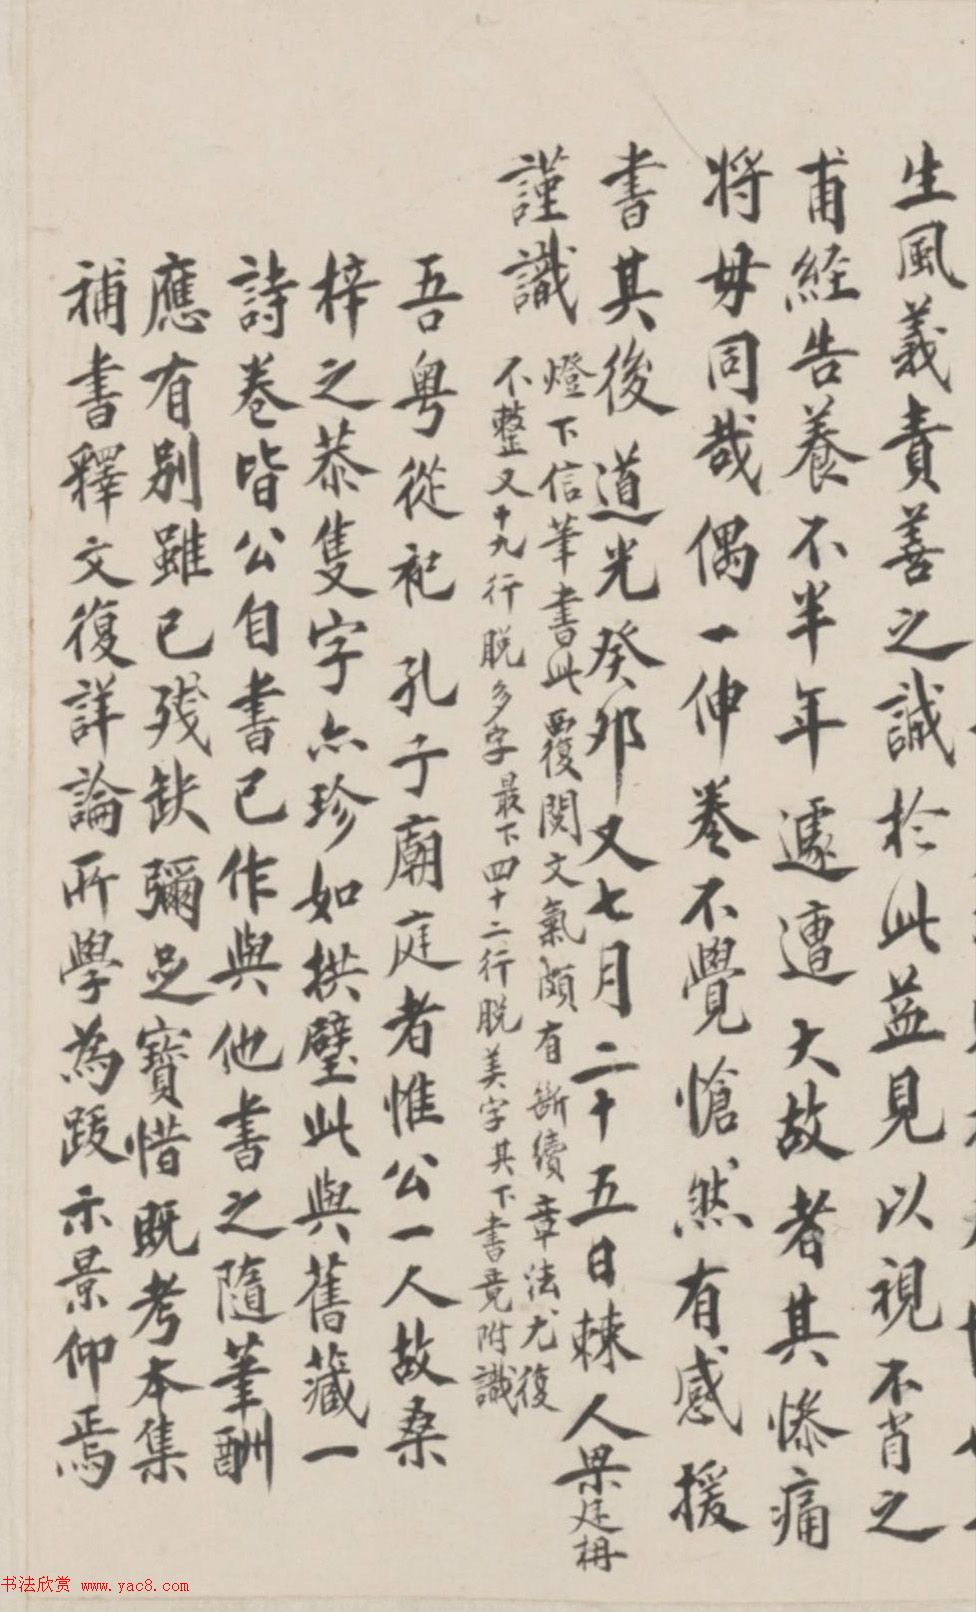 生風義責善之誠於此益見以視不肖之
甫経告養不半年遽遭大故者其慘痛
将毋同哉偶一伸卷不覺愴然有感援
書其後道光癸卯又七月二十五日棘人梁廷枏
謹識
燈下信筆書此覆閱文氣頗有斷續章法尤復
不整又十九行脱多字最下四十二行脱美字其下書竟附識
吾粤從祀孔子廟庭者惟公一人故桑
梓之恭隻字亦珍如拱璧此與舊藏一
詩卷皆公自書已作與他書之隨筆酬
應有别雖已残缺彌足寶惜既考本集
補書釋文復詳論所學為跋示景仰焉
书法欣赏 www.yac8.com